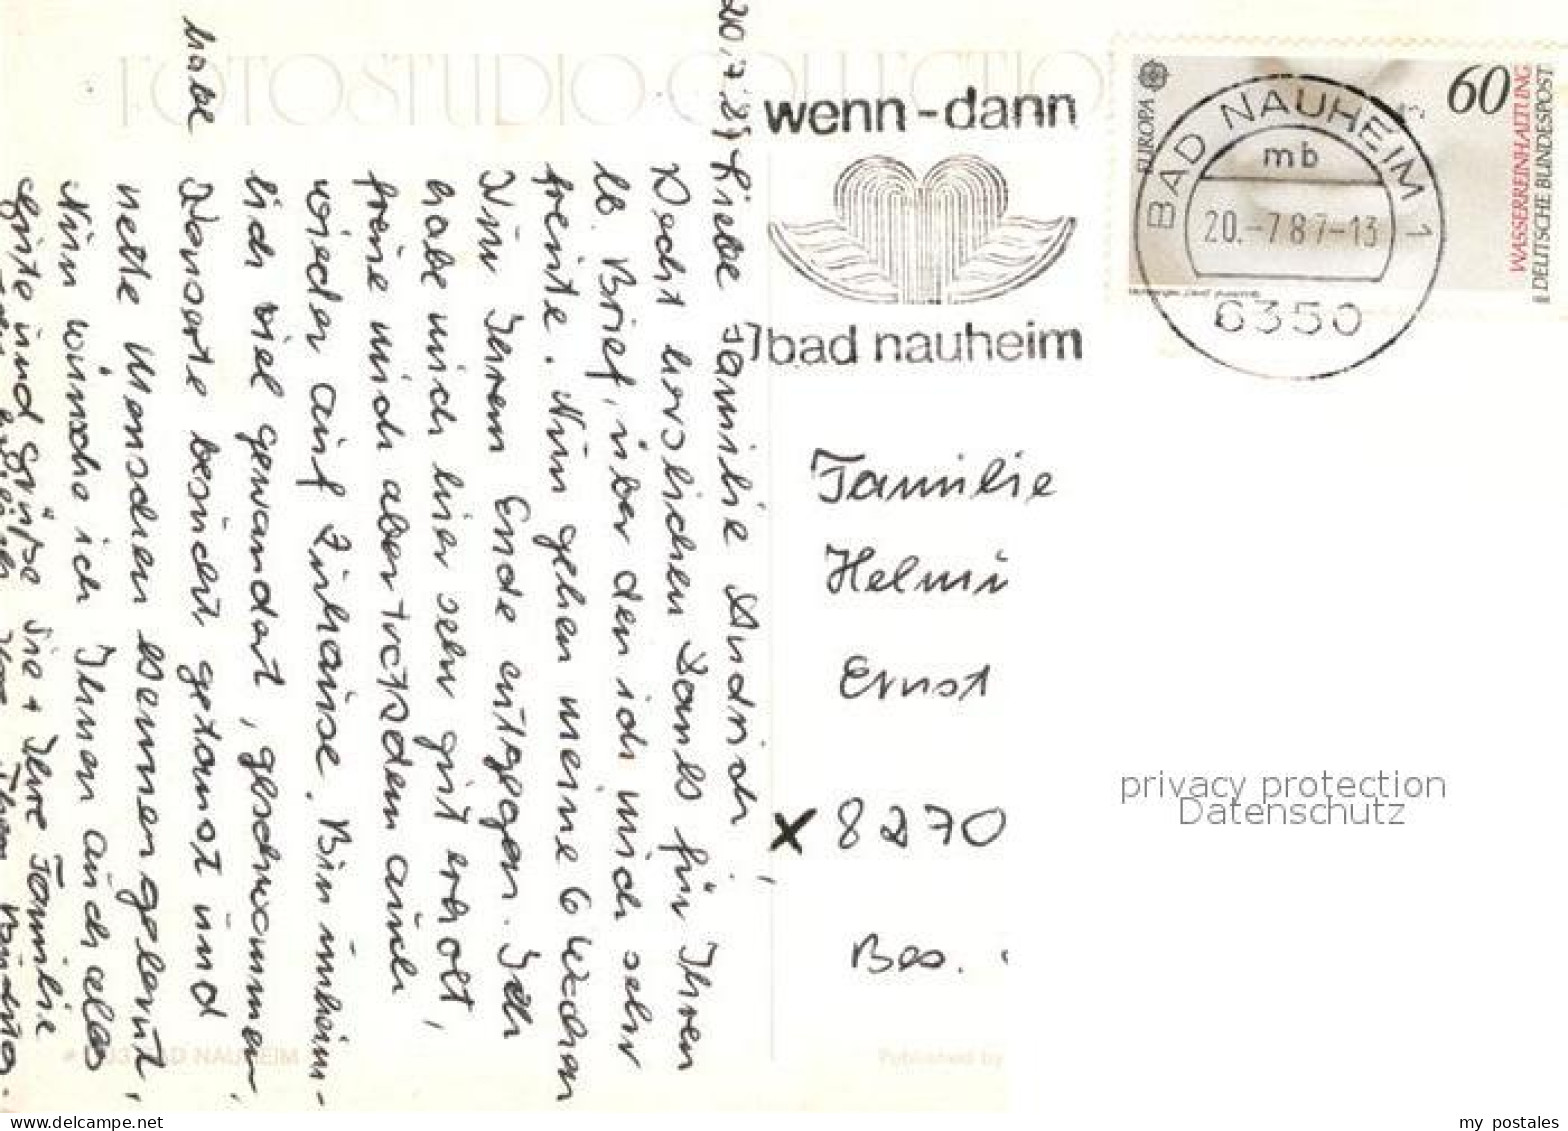 FOTOSTUDIO-COLLECTION
wenn-dann
bad nauheim
EUROPA
60
WASSERREINHALTUNG
DEUTSCHE BUNDESPOST
BAD NAUHEIM 1
mb
20.-7.87-13
6350
20.7.87
Liebe Familie
Recht herzlichen Dank für Ihren
lb. Brief, über den ich mich sehr
freute. Nun gehen meine 6 Wochen
Kur Ihrem Ende entgegen. Ich
habe mich hier sehr gut erholt,
freue mich aber trotzdem auch
wieder auf Zuhause. Bin unheim-
lich viel gewandert, geschwommen,
Konzerte besucht getanzt und
habe
nette Menschen kennengelernt,
Nun wünsche ich Ihnen auch alles
Gute und grüße Sie + Ihre Familie
Familie
Helmu
Ernst
x 8270
Bes.
privacy protection
Datenschutz
BAD NAUHEIM
Published by
delcampe.net
my_postales